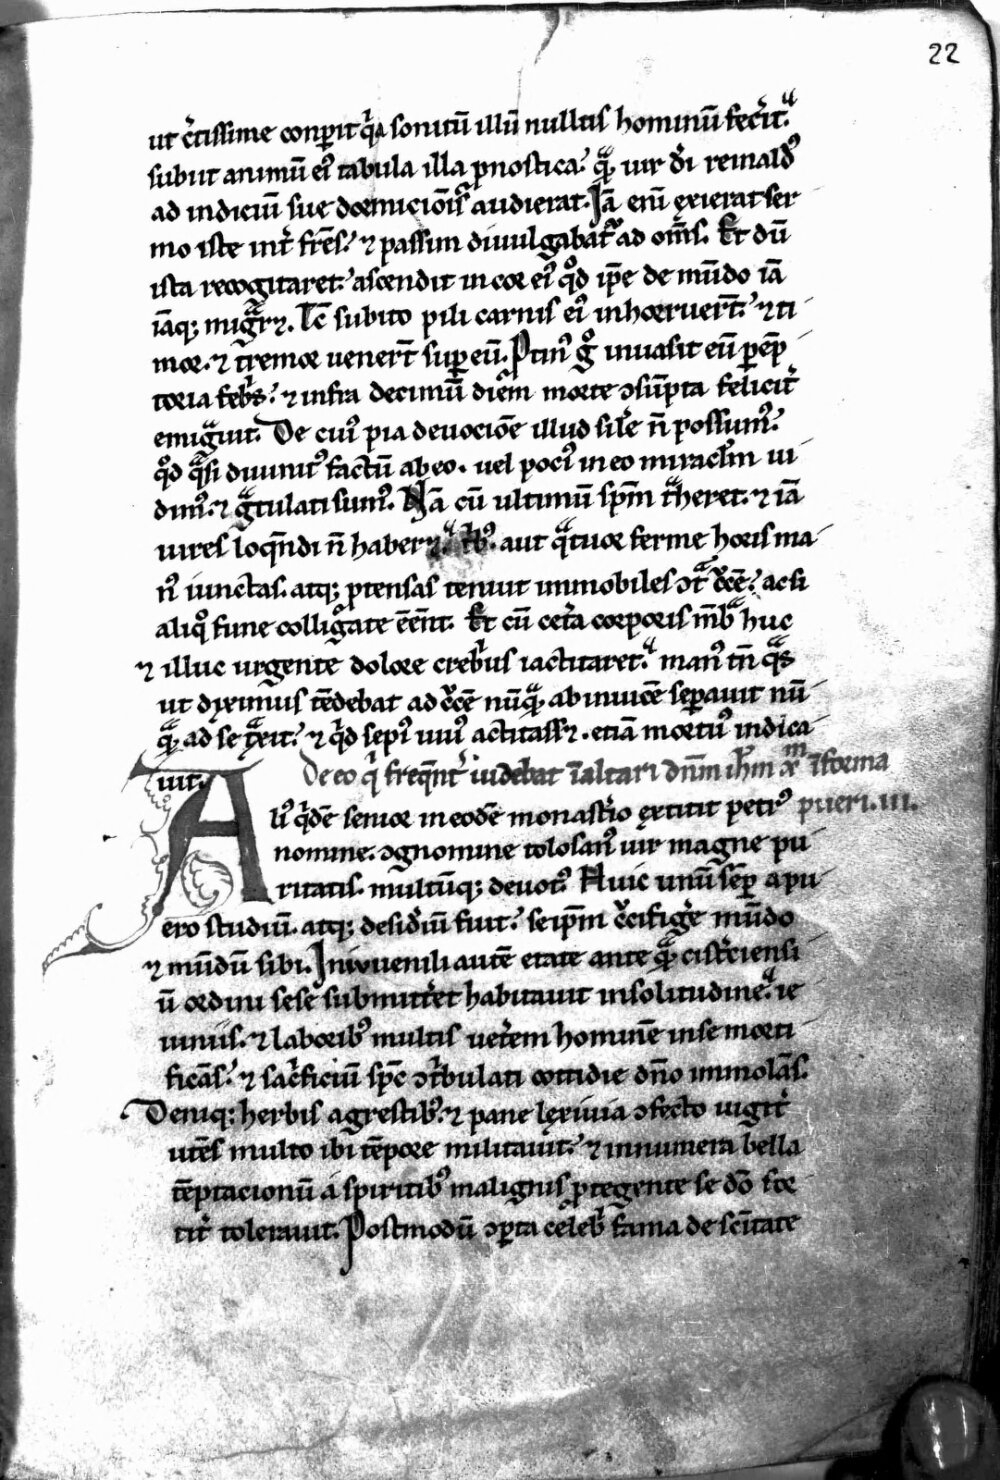 22
ut c̓tissime conꝑit qͥa sonitū illū nullus hominū fec̓it.
subiit animū eiꝰ tabula illa pnostica. qͣꝫ uir dī reinaldꝰ
ad indiciū sue dormicionis audierat. Jā enī exierat ser
mo iste int̓ frēs. ⁊ passim diuulgabat̓ ad om̄s. Et dū
ista recogitaret. ascendit in cor eiꝰ qͦd ip̄e de mūdo iā
iāqꝫ migͣret᷑. Tc̄ subito pili carnis eiꝰ inhorruer̄t. ⁊ ti
mor. ⁊ tremor uener̄t suꝑ eū. Ptinꝰ gͦ inuasit eū ꝑēp
toria febͥs. ⁊ infra decimū diem morte ↄsūpta felicit̓
emigͣuit. De cuiꝰ pia deuocioē illud sile̓ n̄ possumꝰ.
qͦd qͣsi diuinitꝰ factū ab eo. uel pociꝰ in eo miraclm ui
dimꝰ. ⁊ gͣtulati sumꝰ. Nā cū ultimū sp̄m tͣheret. ⁊ iā
uires loqn̄di n̄ haberet᷑. tͥbꝰ. aut qͣtuor ferme horis ma
nꝰ iunctas. atqꝫ ꝓtensas tenuit immobiles ↄtͣ c̓cē. acsi
aliqͦ fune colligate eēnt. Et cū cet̓a corporis mēbͣ huc
⁊ illuc urgente dolore crebͥus iactitaret. manꝰ tn̄ qͣs
ut diximus tēdebat ad c̓cē nūqͣꝫ ab inuicē seꝑauit nū
qͣꝫ ad se tͣxit. ⁊ qͥd sepiꝰ uiuꝰ actitass᷑. etiā mortuꝰ indica
uit. De eo qͥ freqn̄t̓ uidebat ī altari dn̄m ih̄m xͫ ī forma
Aliꝰ qͥdē senior in eodē monast̓io extitit petrꝰ pueri. iii.
nomine. ↄgnomine tolosanꝰ uir magne pu
ritatis. multūqꝫ deuotꝰ. Huic unū seꝑ a pu
ero studiū. atqꝫ desid̓iū fuit. seip̄m c̓cifige̓ mūdo
⁊ mūdū sibi. In iuuenili autē etate ante qͣꝫ cist̓ciensi
ū ordini sese submitt̓et habitauit in solitudine. ie
iuniis. ⁊ laboribꝰ multis uet̓em hominē in se morti
ficās. ⁊ sac̓ficiū sp̄c ↄtͥbulati cottidie dn̄o immolās.
Deniqꝫ herbis agrestibꝰ. ⁊ pane lexiuia ↄfecto uigit̓
utēs multo ibi tēpore militauit. ⁊ innumera bella
tēptacionū a spiritibꝰ malignis ꝓtegente se dō for
tit̓ tolerauit. Postmodū ↄꝑta celeb̓ fama de sc̄itate